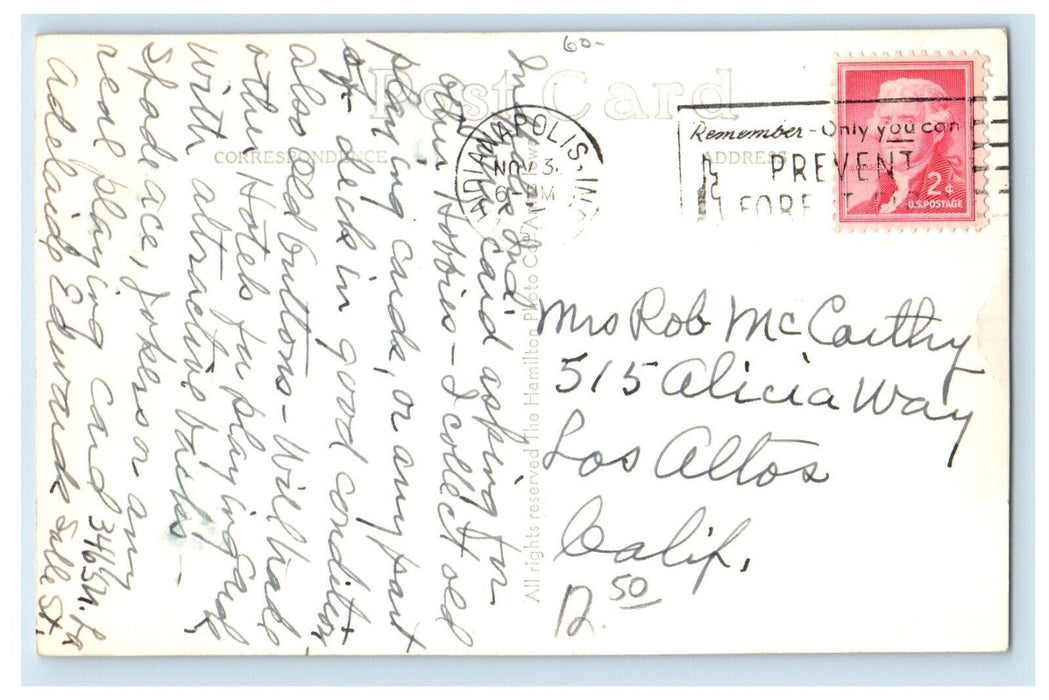 60-
Post Card
CORRESPONDENCE
ADDRESS
INDIANAPOLIS, IND.
NOV 3
6 PM
Remember - Only you can
PREVENT
FOREST FIRES
2¢
U.S. POSTAGE
card asking for
other Hobbies - I collect old
playing cards, or any part
of - deck in good condition
also old buttons - Will trade
other Hotels for playing cards
with attractive backs -
Spade ace, jokers or any
real playing card
Adelaide Edwards
3465 N. La
Salle St,
All rights reserved The Hamilton Photo Co
Mrs Rob McCarthy
515 Alicia Way
Los Altos
Calif.
R. 50